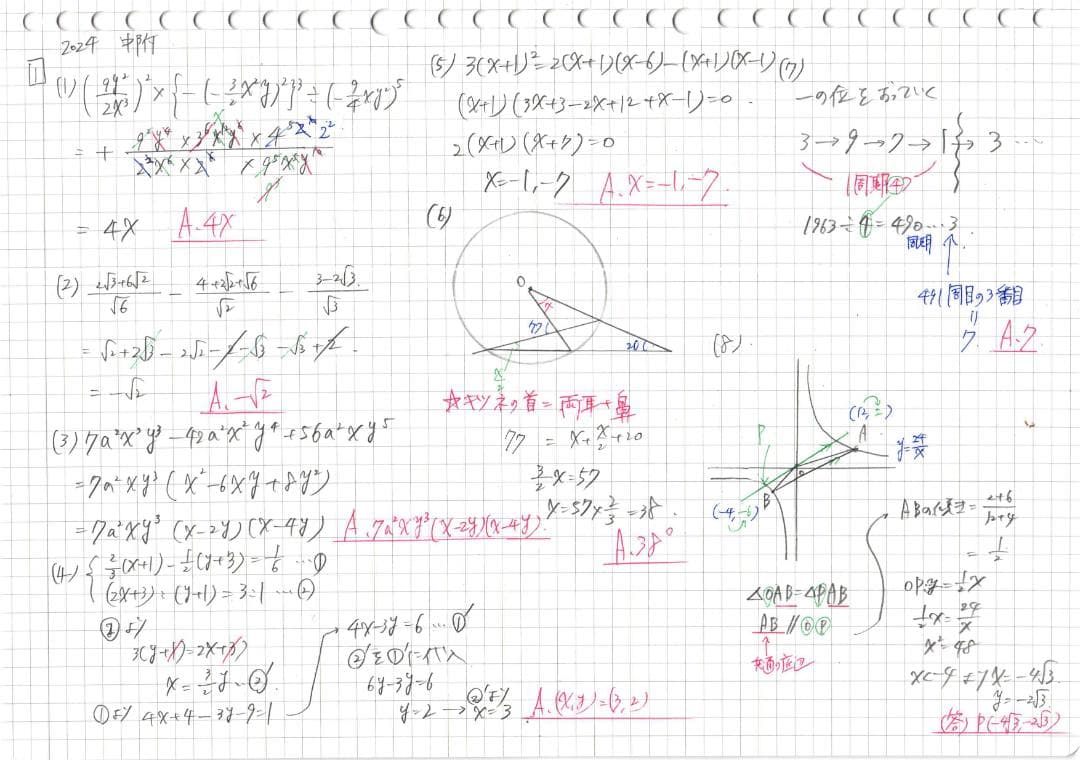 2024 中附
1
(1) (9y²/2x³)² × {-(-3/2x²y)²}³ ÷ (-9/4xy²)⁵
= + 9²y⁴ × 3⁶x¹²y⁶ × 4⁵ 2¹⁰ 2² / 2²x⁶ × 2⁶ × 9⁵x⁵y¹⁰
= 4x A.4x
(2) (2√3+6√2)/√6 - (4+2√2+√6)/√2 - (3-2√3)/√3
= √2+2√3-2√2-2-√3-√3+2.
= -√2 A.-√2
(3) 7a²x³y³-42a²x²y⁴+56a²xy⁵
=7a²xy³(x²-6xy+8y²)
=7a²xy³(x-2y)(x-4y) A.7a²xy³(x-2y)(x-4y)
(4) { 2/3(x+1)-1/2(y+3)=1/6 …①
(2x+3):(y+1)=3:1 …②
②より
3(y+1)=2x+3
x=3/2y…②'
①より 4x+4-3y-9=1
4x-3y=6…①'
②'を①'に代入
6y-3y=6
y=2→②'よりx=3 A.(x,y)=(3,2)
(5) 3(x+1)²=2(x+1)(x-6)-(x+1)(x-1)
(x+1)(3x+3-2x+12+x-1)=0.
2(x+1)(x+7)=0
x=-1,-7 A.x=-1,-7.
(6)
O
x
77
20
x/2
☆キツネの首=両耳+鼻
77 = x+x/2+20
3/2x=57
x=57×2/3=38.
A.38°
(7)
一の位をおっていく
3→9→7→1→3…
1周期④
1963÷4=490…3
周期
491周目の3番目
=
7. A.7
(8)
(12, 2)
A
P
y=24/x
O
B
(-4,-6)
△OAB=△PAB
AB//OP
共通の底辺
ABの傾き=(2+6)/(12+4)
=1/2
OP:y=1/2x
1/2x=24/x
x²=48
x<-4よりx=-4√3.
y=-2√3
(答)P(-4√3,-2√3)